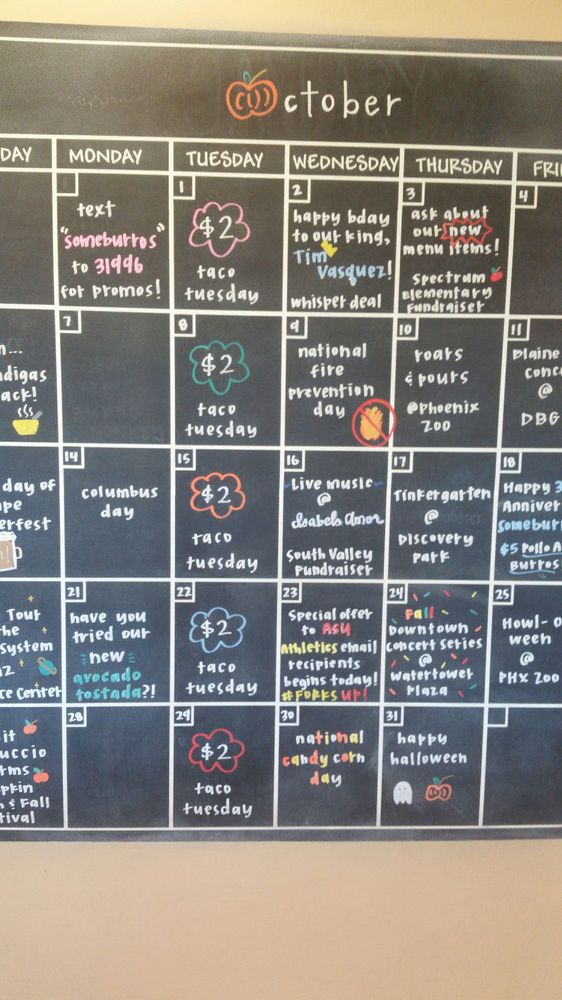 October
DAY MONDAY TUESDAY WEDNESDAY THURSDAY FRI
text
"someburros"
to 31996
for promos!
1
$2
taco
tuesday
2
happy bday
to our king,
Tim
Vasquez!
whisper deal
3
ask about
our new
menu items!
Spectrum
Elementary
Fundraiser
4
digas
ack!
7
8
$2
taco
tuesday
9
national
fire
prevention
day
10
roars
& pours
@phoenix
zoo
11
Plaine
Conc
@
DBG
day of
pe
erfest
14
columbus
day
15
$2
taco
tuesday
16
Live music
@
Isabels Amor
South Valley
Fundraiser
17
Tinkergarten
@
Discovery
Park
18
Happy 3
Anniver
Someburr
$5 Pollo A
Burros!
Tour
the
System
nz
ce Center
21
have you
tried our
new
avocado
tostada?!
22
$2
taco
tuesday
23
Special offer
to ASU
Athletics email
recipients
begins today!
#FORKS UP!
24
Fall
Downtown
concert series
@
Watertower
Plaza
25
Howl-o
ween
@
PHX Zoo
it
uccio
rms
pkin
n & Fall
tival
28
29
$2
taco
tuesday
30
national
candy corn
day
31
happy
halloween